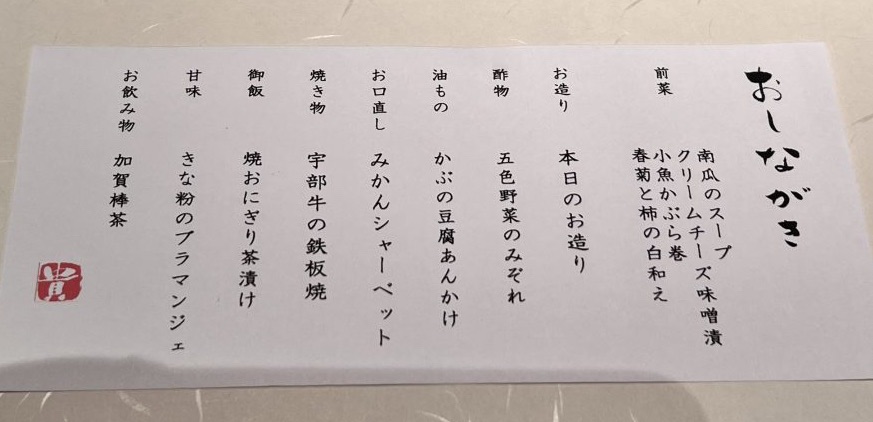 おしながき
前菜
南瓜のスープ
クリームチーズ味噌漬
小魚かぶら巻
春菊と柿の白和え
お造り
本日のお造り
酢物
五色野菜のみぞれ
油もの
かぶの豆腐あんかけ
お口直し
みかんシャーベット
焼き物
宇部牛の鉄板焼
御飯
焼おにぎり茶漬け
甘味
きな粉のブラマンジェ
お飲み物
加賀棒茶